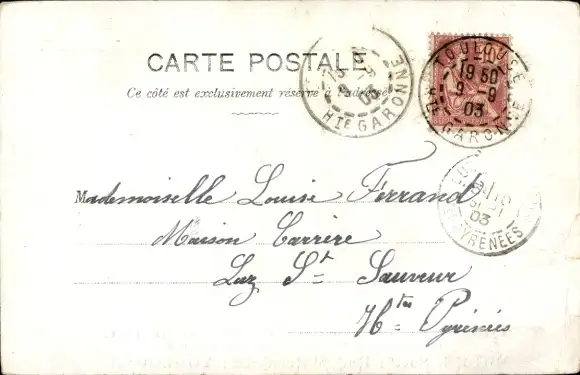 CARTE POSTALE
Ce côté est exclusivement réservé à l'adresse
TOULOUSE
19 50
9 - 9
03
HTE GARONNE
HTE GARONNE
03
03
PYRENEES
Mademoiselle Louise Ferrand
Maison Carrère
Luz St Sauveur
Htes Pyrénées